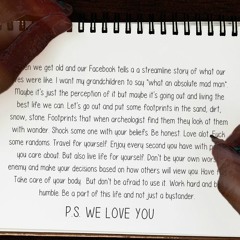 en we get old and our Facebook tells a a streamline story of what our
es were like. I want my grandchildren to say "what an absolute mad man"
Maybe it's just the perception of it but maybe it's going out and living the
best life we can. Let's go out and put some footprints in the sand, dirt,
snow, stone. Footprints that when archeologist find them they look at them
with wonder. Shock some one with your beliefs. Be honest. Love dot. Fuck
some randoms. Travel for yourself. Enjoy every second you have with
you care about. But also live life for yourself. Don't be your own wors
enemy and make your decisions based on how others will view you. Have f
Take care of your body. But don't be afraid to use it. Work hard and b
humble. Be a part of this life and not just a bystander
P.S. WE LOVE YOU